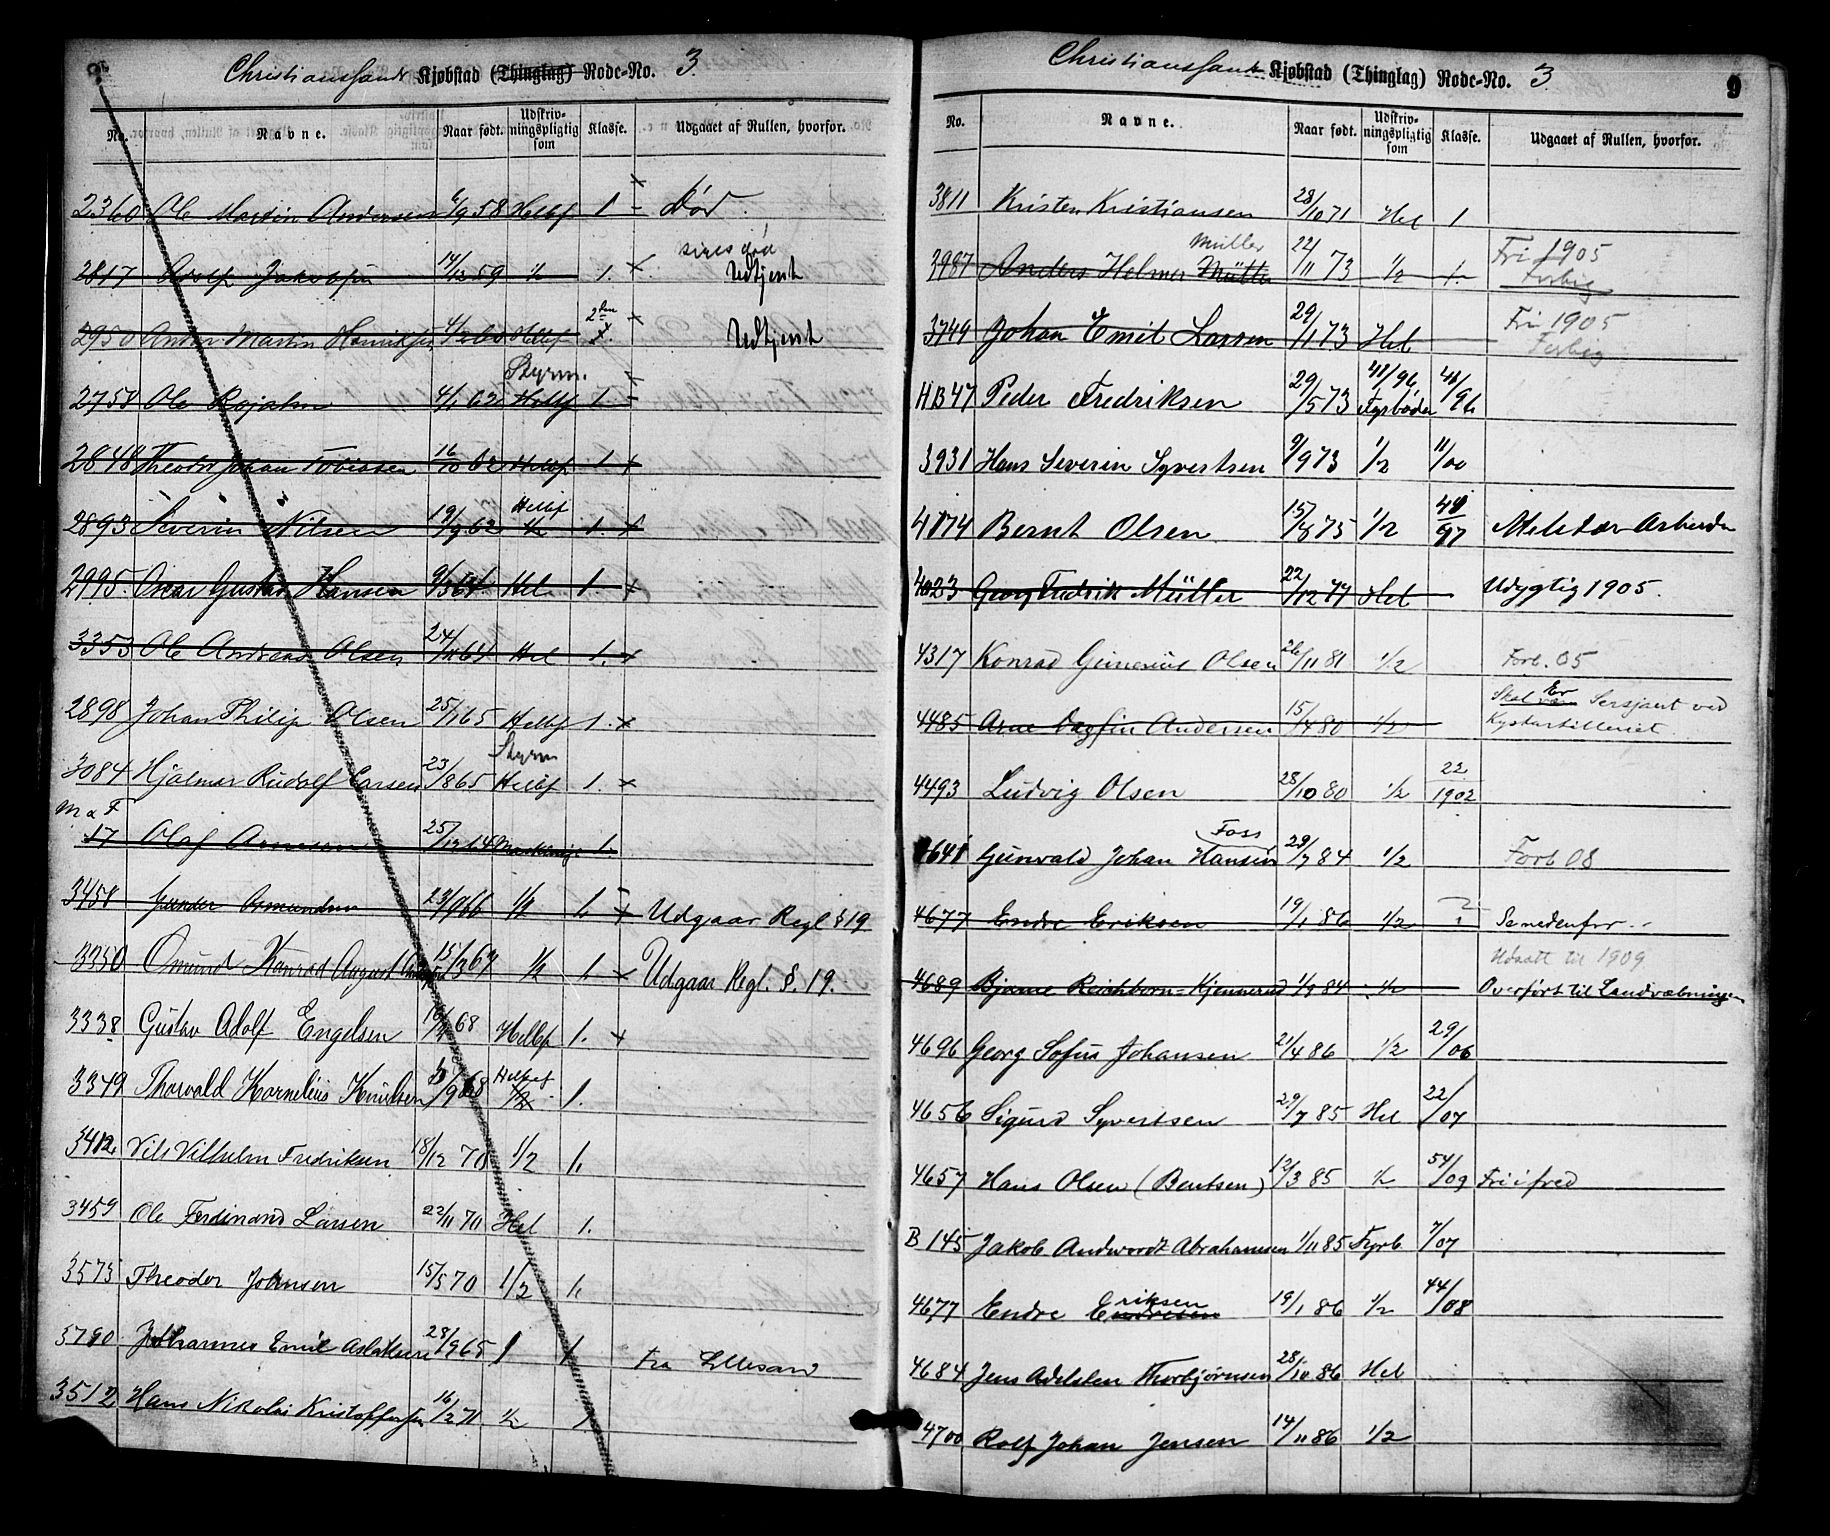 Christianssands Kjøbstad (Thinglag) Rode-No. 3.
No. Navne. Naar født. Udskriv-ningspligtig som Klasse. Udgaaet af Rullen, hvorfor.
2360 Ole Martin Andersen 6/9 58 Helbf 1 Død.
siges død
2817 Adolf Jakobsen 14/12 59 1/2 1. Udtjent
2950 Martin Henriksen Helbf 2den Udtjent
Styrm.
2758 Ole Rojahn 4/1 62 Helbf 1
2848 Theodor Johan Tobiassen 16/10 62 Helbf 1
Helbf
2893 Severin Nilsen 19/9 62 1/2 1.
2995. Oscar Gustav Hansen 9/3 64 Hel 1.
3353 Ole Andreas Olsen 24/11 64 Hel 1.
2898 Johan Philip Olsen 25/1 65 Helbf 1.
Styrm
3084 Hjalmar Rudolf Larsen 23/8 65 Helbf 1.
M a F
17 Olaf 25/12 64 1.
3458 Gunder 23/9 66 1/2 1. Udgaar Regl § 19
3350 Omund Konrad August 15/3 67 1/2 1. Udgaar Regl. §. 19.
3338 Gustav Adolf Engelsen 68 Helbf 1.
Helbef
3349 Thorvald Kornelius Knudsen /9 68 1/2 1.
3412 Nils Vilhelm Fredriksen 18/12 70 1/2 1.
3459 Ole Ferdinand Larsen 22/11 70 Hel 1.
3575 Theodor Johnsen 15/5 70 1/2 1.
3790 Johannes Emil Aslaksen 28/9 65 1 1. fra Lillesand
3512 Hans Nikolai Kristoffersen 16/2 71 1/2 1
Christianssands Kjøbstad (Thinglag) Rode-No. 3. 9
No. Navne. Naar født. Udskriv-ningspligtig som Klasse. Udgaaet af Rullen, hvorfor.
3811 Kristen Kristiansen 28/10 71 Hel 1
Müller Fri 1905
3987 Anders Helmer Müller 22/11 73 1/2 1. Forbig
Fri 1905
3749 Johan Emil Larsen 29/1 73 Hel Forbig
HB 47 Peder Fredriksen 29/5 73 48/96 Fyrbøder 48/96
3931 Hans Severin Syvertsen 9/9 73 1/2 11/00
4174 Bernt Olsen 15/8 75 1/2 97 Militær Arbeider
4023 Georg Fredrik Müller 22/12 77 Hel Udygtig 1905.
4317 Konrad Gunerius Olsen 26/11 81 1/2 Forb. 05
Skal Er Sersjant ved
4485 Arne Dagfin Andersen 15/4 80 1/2 Kystartilleriet
4493 Ludvig Olsen 28/10 80 1/2 22/1902
Foss
4641 Gunvald Johan Hansen 29/7 84 1/2 Forb 08
4677 Endre Eriksen 19/1 86 1/2 Se nedenfor..
Udsatt til 1909
4689 Bjarne Reichborn-Kjennerud 1/8 84 1/2 Overført til Landværbningen
4696 Georg Sofus Johansen 21/4 86 1/2 29/06
4656 Sigurd Syvertsen 29/7 85 Hel 22/07
4657 Hans Olsen (Bentsen) 12/3 85 1/2 54/09 Fri i fred
B 145 Jakob Andwordt Abrahamsen 1/11 85 Fyrb 7/07
riksen
4677 Endre E 19/1 86 1/2 44/08
4684 Jens Adelsten Thorbjørnsen 28/10 86 Hel
4700 Rolf Johan Jensen 14/11 86 1/2